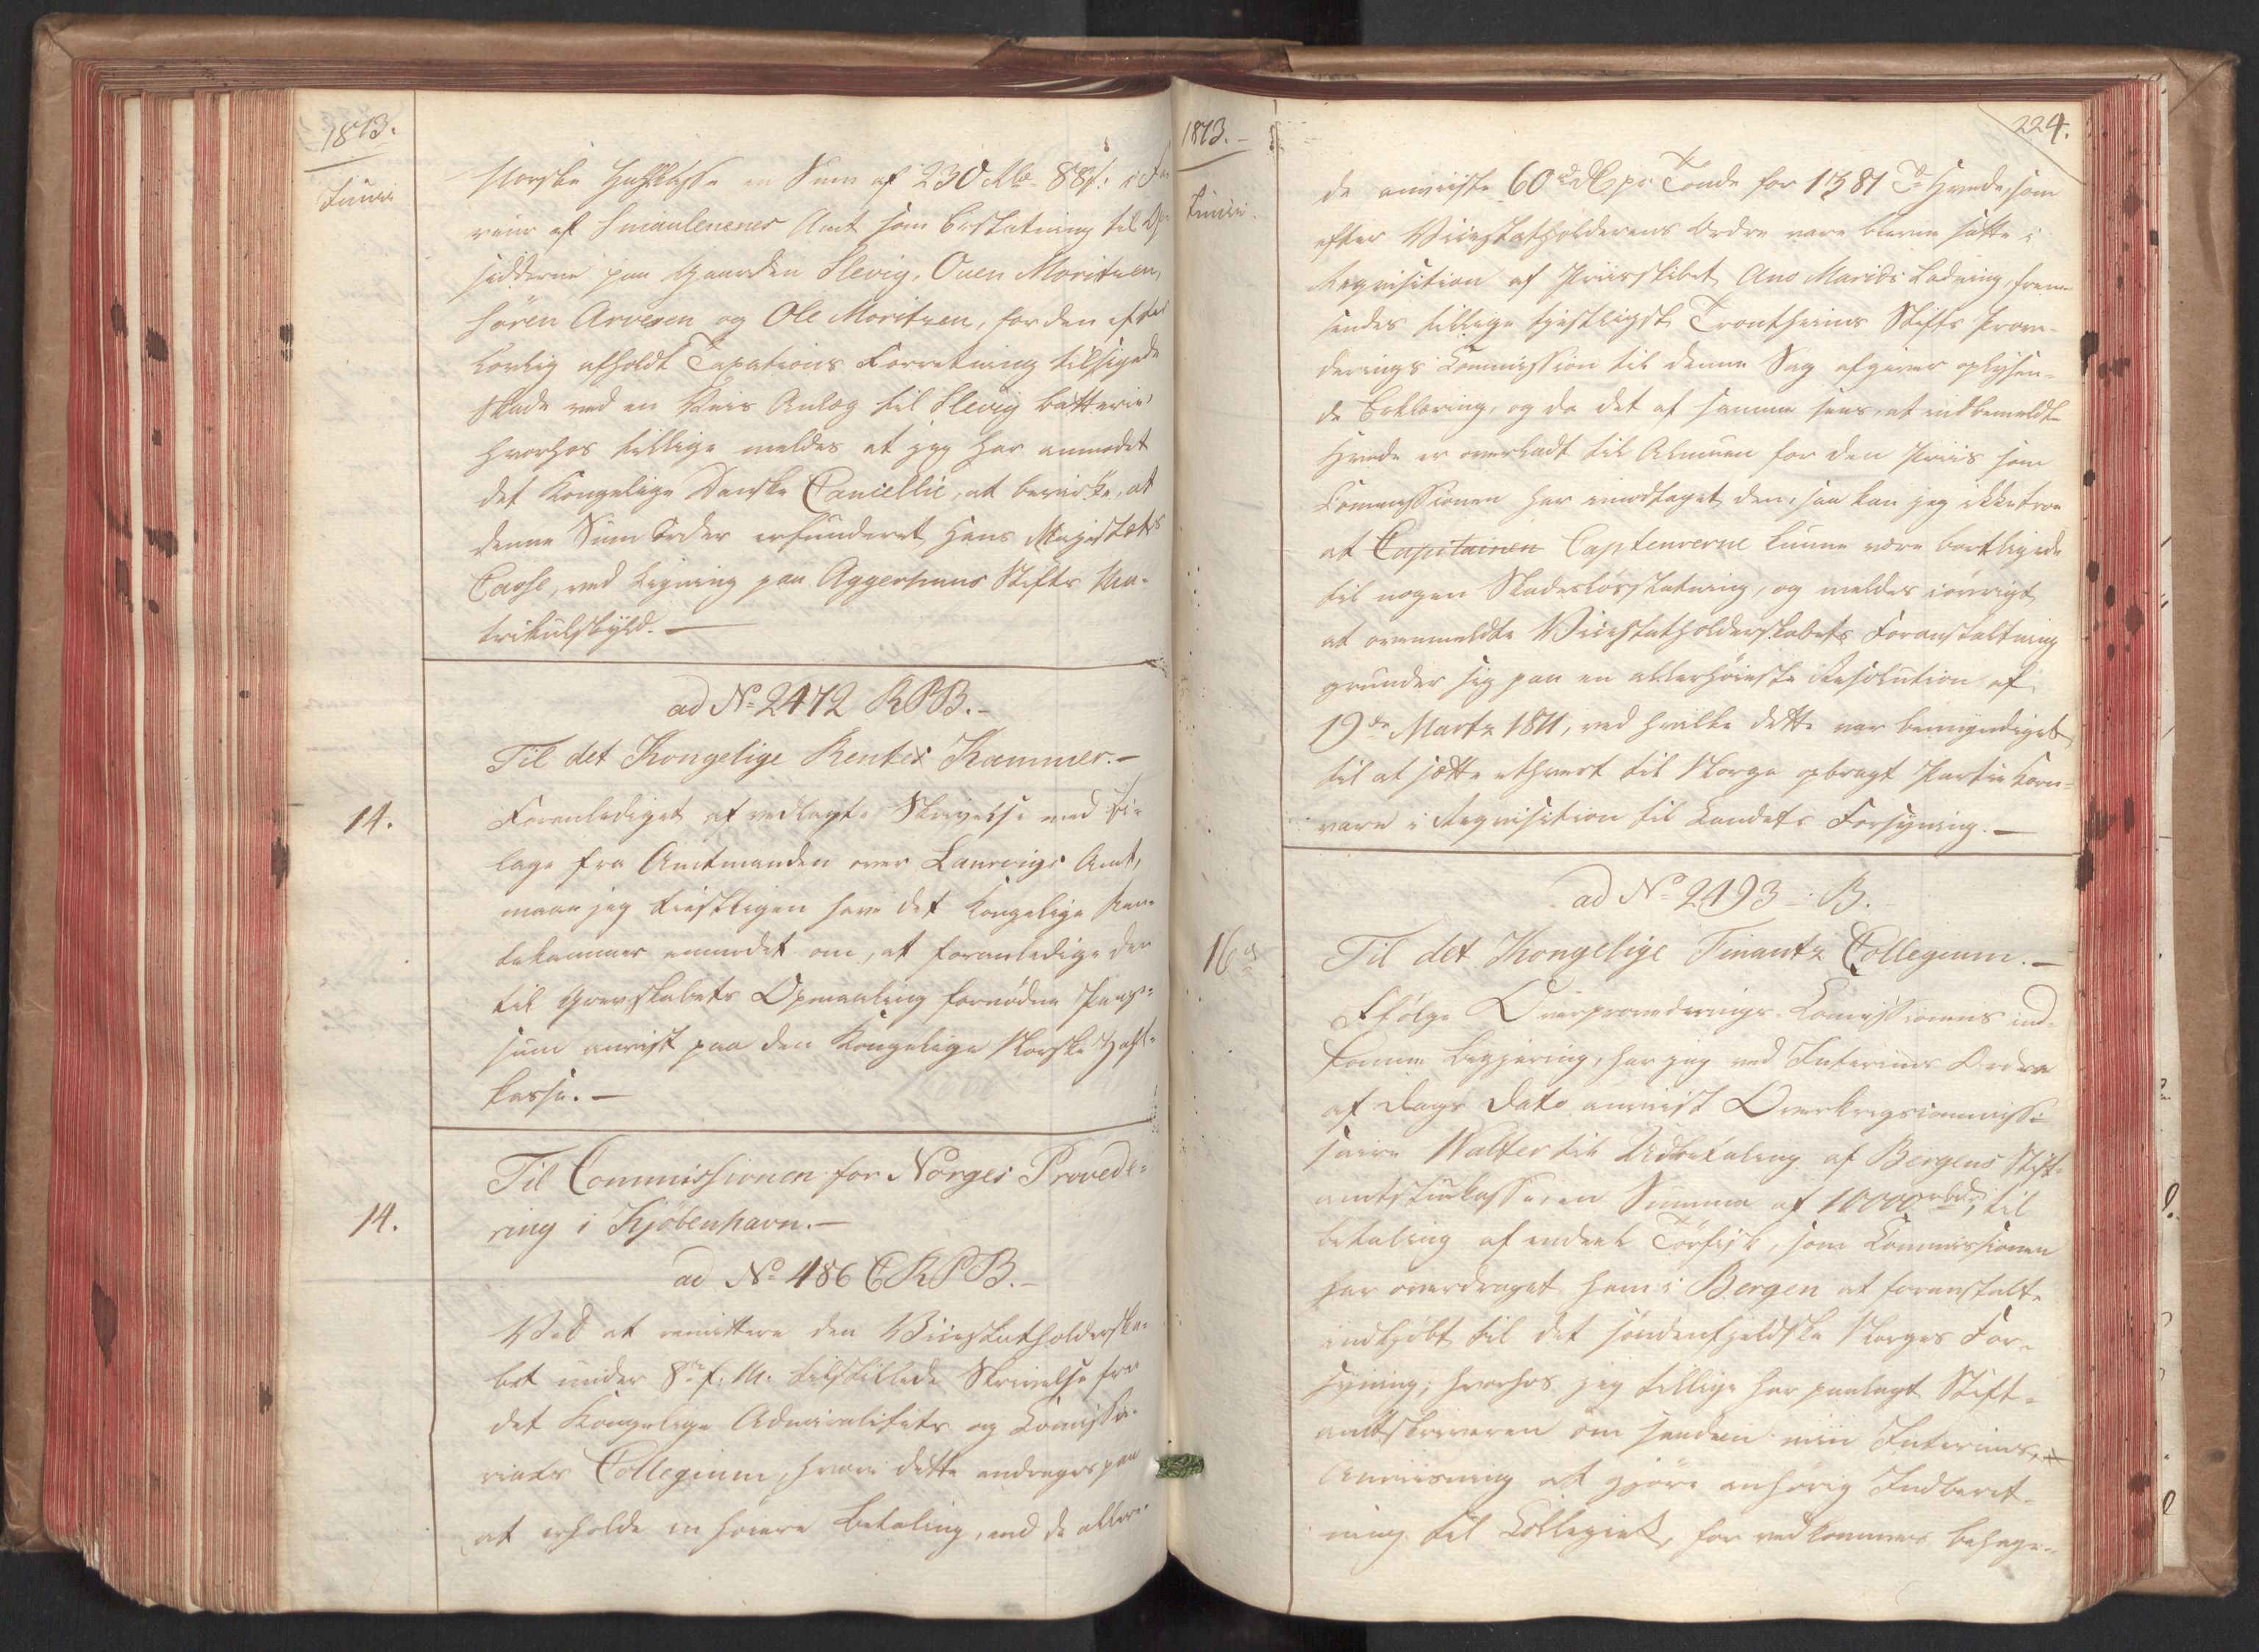 1813.
Junii
Norske Hofkasse en Sum af 230 Rbd. 88 s.
af Smaalenenes Amt som Erstatning til
sidderne paa Gaarden Slevig, Ouen Moritzen,
Sören Arvesen og Ole Moritzen, for den efter
lovlig afholdt Taxations Forretning tilføyede
Skade ved en Veis Anlæg til Slevig Batterie
hvorhos tillige meldes at jeg har anmodet
det Kongelige Danske Cancellie, at bevirke, at
denne Sum bliver refunderet Hans Majestæts
Casse, ved Ligning paa Aggershuus Stifts Ma-
trikulskyld. —
ad No 2472 RPB. -
Til det Kongelige Rente Kammer. -
14.
Foranlediget af vedlagte Skrivelse med Bi-
lage fra Amtmanden over Laurvigs Amt,
maae jeg tienstligen have det Kongelige Ren-
tekammer anmodet om, at foranledige den
til Grevskabets Opmaaling fornødne Penge-
sum anvist paa den Kongelige Norske Hof-
kasse. —
Til Commissionen for Norges Provede-
14.
ring i Kjöbenhavn. —
ad No 486 CRPB. -
Ved at remittere den Viicestatholderska-
bet under 8de f. M. tilstillede Skrivelse fra
det Kongelige Admiralitets og Commissa-
riats Collegium, hvori dette andrages paa
at erholde en høiere Betaling, end de allere-
1813. -
224.
Junii.
de anviiste 60 rd pr. Tønde for 1381 Tr Hvede, som
efter Viicestatholderens Ordre vare blevne satte i
Requisition af Priiseskibet Ano Marids Ladning, frem-
sendes tillige tienstligst Trontheims Stifts Prove-
derings Commission til denne Sag afgivne oplysen-
de Erklæring, og da det af samme sees, at indbemeldte
Hvede er overladt til Almuen for den Priis som
Commissionen har modtaget den, saa kan jeg ikke troe
at Capitainen Capteurerne kunne være berettigede
til nogen Skadesløsstatning, og meldes iøvrigt
at ovenmeldte Viicestatholderskabets Foranstaltning
grunder sig paa en allerhøieste Resolution af
19de Martz 1811, ved hvilke dette var bemyndiget
til at sætte ethvert til Norge opbragt Partie Korn-
vare i Requisition til Landets Forsyning. —
ad No 2493 - B.
16de
Til det Kongelige Finantz Collegium. —
Ifølge Overprovederings-Commissionens ind-
komne Begjæring, har jeg ved Interims Ordre
af Dags Dato anvist Overkrigscommis-
sair Walter til Udbetaling af Bergens Stift-
amtstuekasse, en Summa af 10000 rbd, til
Betaling af endeel Törfisk, som Commissionen
har overdraget ham i Bergen at foranstalte
indkjøbt til det søndenfjeldske Norges For-
syning; hvorhos jeg tillige har paalagt Stift-
amtskriveren om saadan min Interims-
Anviisning at gjøre enhørig Indberet-
ning til Collegiet, for vedkommes behage-